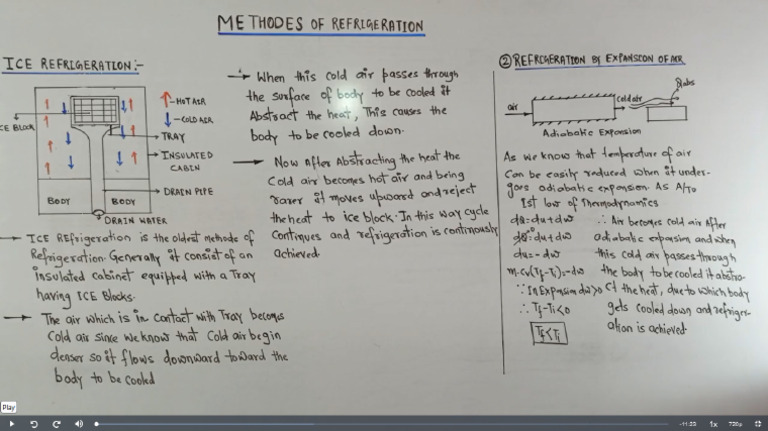 METHODES OF REFRIGERATION
ICE REFRIGERATION:-
HOT AIR
COLD AIR
CE BLOCK
TRAY
INSULATED
CABIN
BODY
BODY
DRAIN PIPE
DRAIN WATER
ICE REfrigeration is the oldest methode of
Refrigeration. Generally it consist of an
insulated cabinet equipped with a Tray
having ICE Blocks.
The air which is in contact with Tray becomes
Cold air since we know that Cold air begin
denser so it flows downward toward the
body to be cooled
When this cold air passes through
the surface of body to be cooled it
Abstract the heat, This causes the
body to be cooled down.
Now After Abstracting the heat the
Cold air becomes hot air and being
rarer it moves upward and reject
the heat to ice block. In this way cycle
Continues and refrigeration is continously
achieved
② REFRIGERATION By EXPANSION OF AIR
air
Cold air
Slabs
Adiabatic Expansion
As we know that temperature of air
Can be easily reduced when it under-
goes adiabatic expansion. As A/To
Ist law of Thermodynamics
dQ=du+dw
dQ=du+dw
du=-dw
m.Cv(Tf-Ti)=-dw
∵ In Expansion dw>0
∴ Tf-Ti<0
Tf<Ti
∴ Air becomes cold air After
adiabatic expansion and when
this cold air passes through
the body to be cooled it abstra-
ct the heat, due to which body
gets cooled down and refriger-
ation is achieved
Play
-11:23
1x
720p